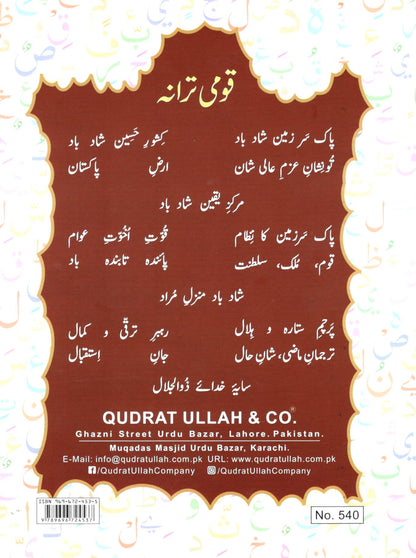 قومی ترانہ
پاک سرزمین شاد باد کشورِ حسین شاد باد
تُو نشانِ عزمِ عالی شان ارضِ پاکستان
مرکزِ یقین شاد باد
پاک سرزمین کا نظام قوّتِ اُخوّتِ عوام
قوم، مُلک، سلطنت پائندہ تابندہ باد
شاد باد منزلِ مُراد
پرچمِ ستارہ و ہلال رہبرِ ترقّی و کمال
ترجمانِ ماضی، شانِ حال جانِ اِستقبال
سایۂ خدائے ذوالجلال
QUDRAT ULLAH & CO.
Ghazni Street Urdu Bazar, Lahore. Pakistan.
Muqadas Masjid Urdu Bazar, Karachi.
E-Mail: info@qudratullah.com.pk URL: www.qudratullah.com.pk
/QudratUllahCompany /QudratUllahCompany
ISBN 969-672-453-5
9789696724537
No. 540